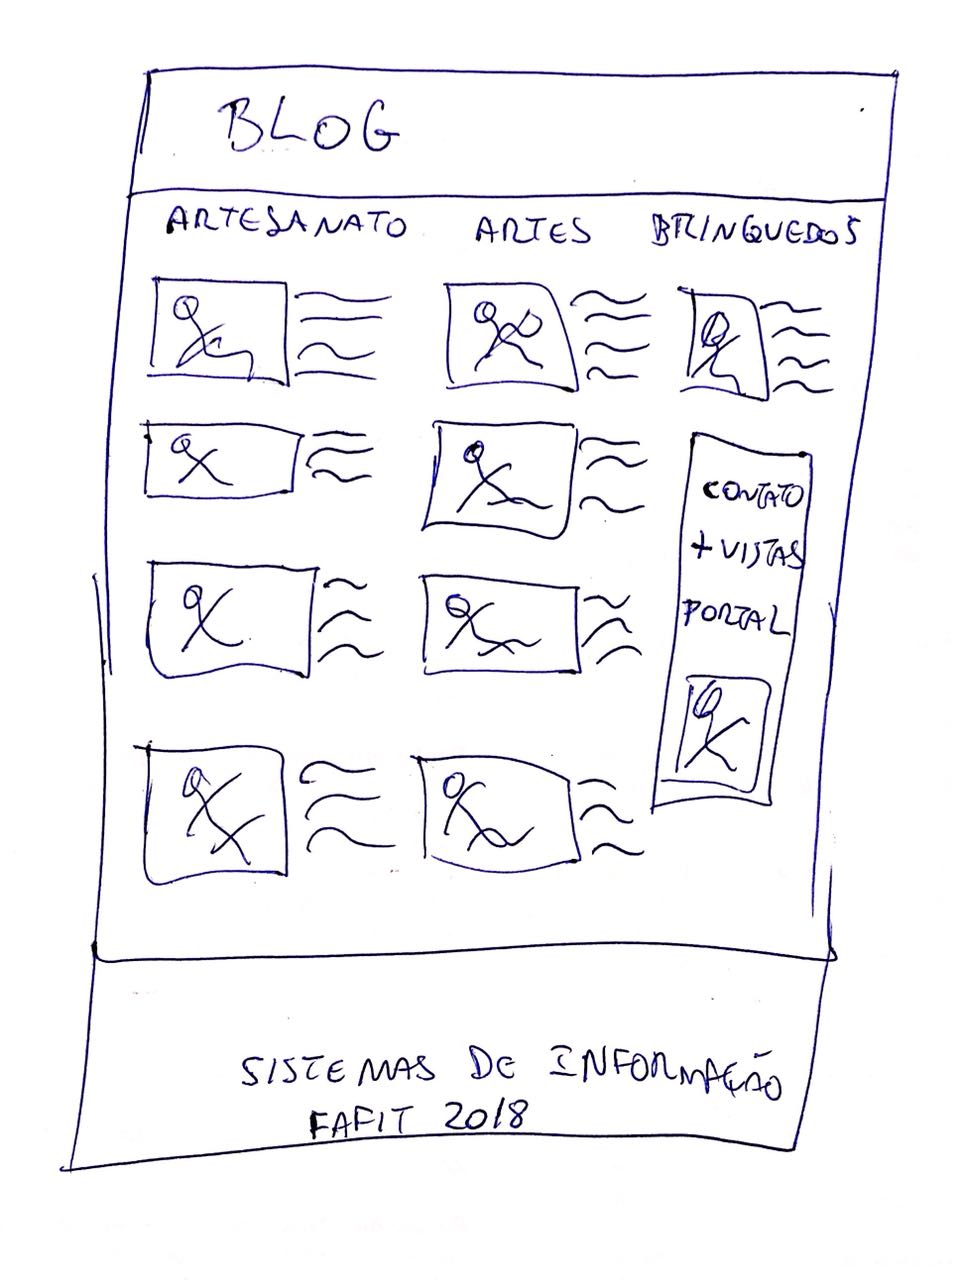 BLOG
ARTESANATO ARTES BRINQUEDOS
CONTATO
+ VISTAS
PORTAL
SISTEMAS DE INFORMAÇÃO
FAFIT 2018